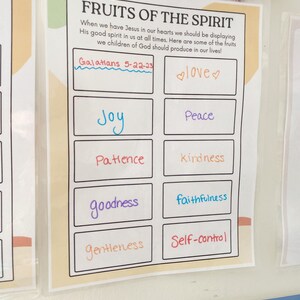 FRUITS OF THE SPIRIT
When we have Jesus in our hearts we should be displaying
His good spirit in us at all times. Here are some of the fruits
we children of God should produce in our lives!
Galatians 5-22-23
love
Joy
Peace
Patience
kindness
goodness
faithfulness
gentleness
Self-control